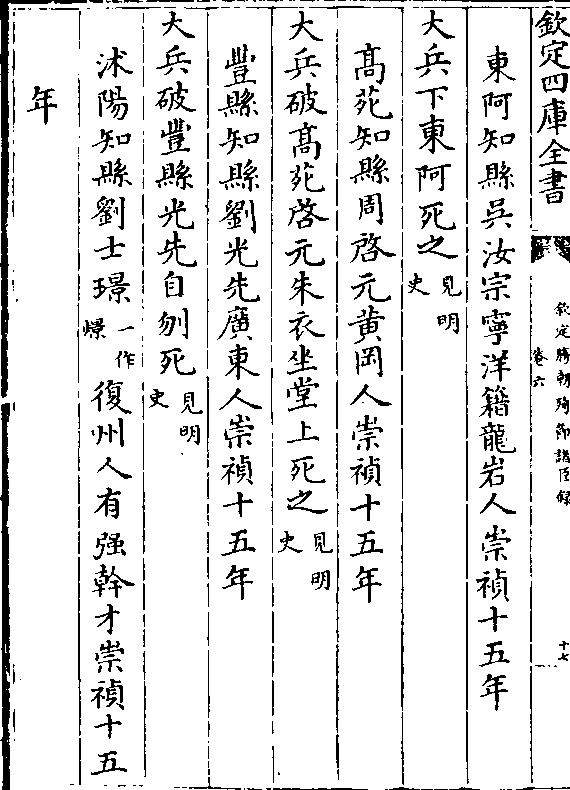 欽定四庫全書
欽定勝朝殉節諸臣錄
卷六
十七
東阿知縣吳汝宗寧洋籍龍岩人崇禎十五年
大兵下東阿死之見明史
高苑知縣周啓元黄岡人崇禎十五年
大兵破高苑啓元朱衣坐堂上死之見明史
豐縣知縣劉光先廣東人崇禎十五年
大兵破豐縣光先自刎死見明史
沭陽知縣劉士璟一作憬復州人有强幹才崇禎十五
年